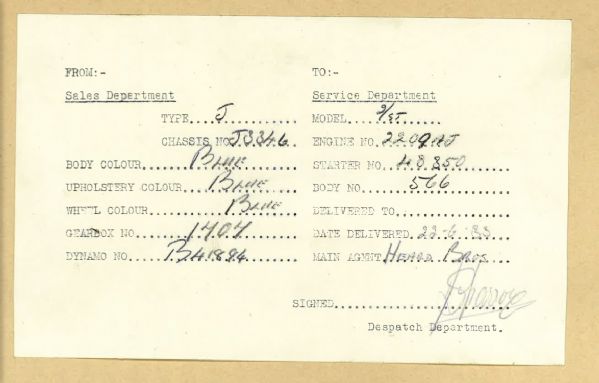 FROM:- TO:-
Sales Department Service Department
TYPE J MODEL 2/ST.
CHASSIS NO. J3346 ENGINE NO. 2209AJ
BODY COLOUR Blue STARTER NO. 48850
UPHOLSTERY COLOUR Blue BODY NO. 566
WHEEL COLOUR Blue DELIVERED TO
GEARBOX NO. 1404 DATE DELIVERED 22-6-33
DYNAMO NO. B41894 MAIN AGENT Bros.
SIGNED
Despatch Department.